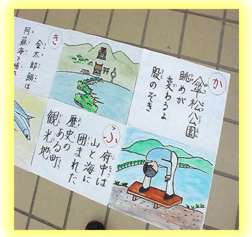 か
傘松公園
眺めが
変わるよ
股のぞき
き
金太郎鰯は
阿蘇海
ふ
府中は
山と海に
囲まれた
歴史の
ある町
観光地